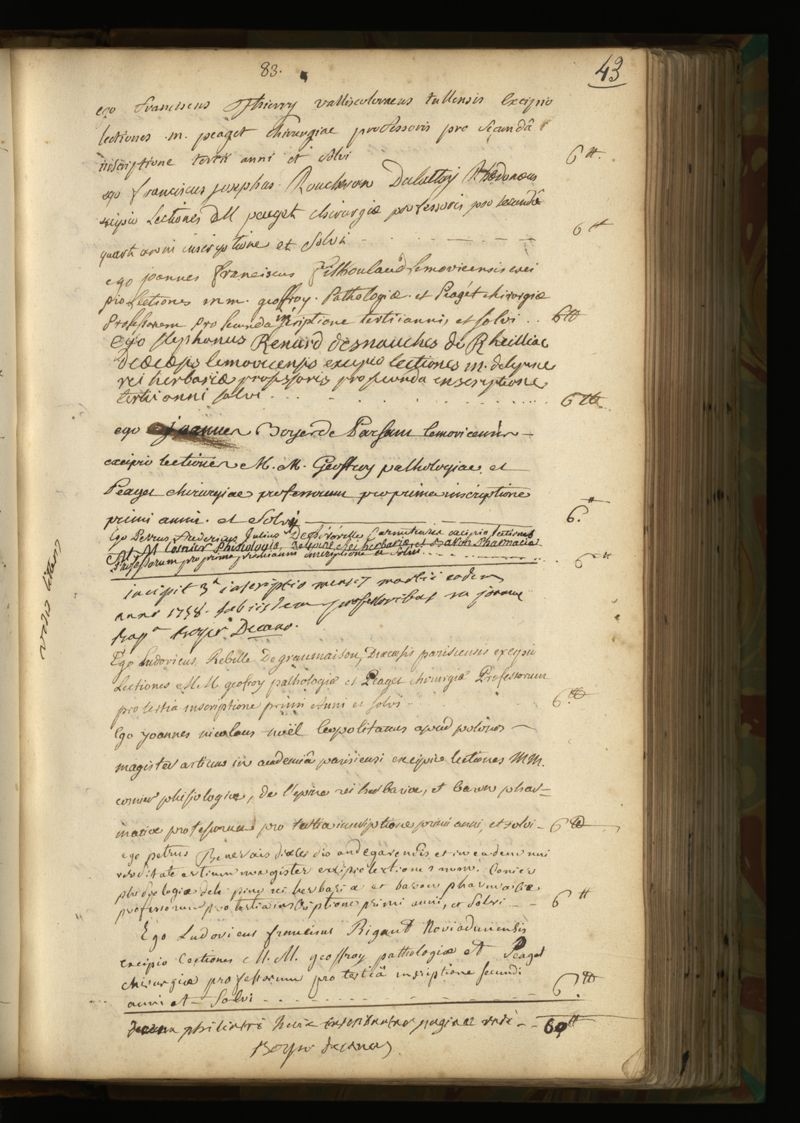 83.
43
ego Franciscus Thierry valliscoloreus tullensis Excipio
lectiones m. peaget Chirurgiae professoris pro secundâ
inscriptione tertii anni et solvi 6 tt.
ego franciscus josephus Rhedoneus
excipio Lectiones DM peaget chirurgiæ professoris pro secundâ
quarti anni inscriptione et Solvi - - - - 6 tt
ego joannes franciscus lemovicensis exci
pio lectiones m m. geoffroy. Pathologiæ. et Peaget chirurgiæ
Professorum pro secunda inscriptione tertii anni, et solvi .. 6 tt
Ego stephanus Renard desnauches de Rheillac
Diœcesis lemovicensis excipio lectiones m. delepine
rei herbariæ professoris pro secunda inscriptione
tertii anni solvi . . . . . . 6 tt
ego joannes Boyer de lemovicensis
excipio lectiones M. M. Geoffroy pathologiae et
Peaget chirurgiae professorum pro prima inscriptione
primi anni. et Solvi 6. tt
Ego Petrus Fredericus Julius excipio lectiones
M M Cornier Phisiologiæ, delepine rei herbariæ et Baron Pharmaciæ
Professorum pro prima primi anni inscriptione et Solvi . . . . 6 tt
incipit 3a inscriptio mensis martii eadem
anno 1758. sub iisdem professoribus
Boyer Decano.
Ego Ludovicus Rebille Degraumaison, Diœcesis parisiensis excipio
Lectiones MM geofroy pathologiæ et Peaget chirurgiæ Professorum
pro tertia inscriptione primi anni et solvi 6. tt
Ego joannes nicolaus noël leopolitanus apud polonos
magister artium in academiâ parisiensi excipio lectiones MM.
cornier phisiologiæ, de l'epine rei herbariæ, et baron phar-
maciæ professorum pro tertia inscriptione primi anni, et solvi - 6 tt
ego petrus Benevais andegavensis et in eadem uni
versitate artium magister excipio lectiones mm. Cornier
phisologiæ delepine rei herbariæ et baron pharmaciæ
professorum pro tertia inscriptione primi anni, et Solvi - - 6 tt
Ego Ludovicus franciscus Rigaut Noviodunensis
excipio Lectiones M. M. geoffroy pathologiæ et Peaget
chirurgiæ professorum pro tertiâ inscriptione secundi
anni et Solvi . . . . . 6 tt.
decem philiatri huic paginæ - - 60 tt
Boyer decanus